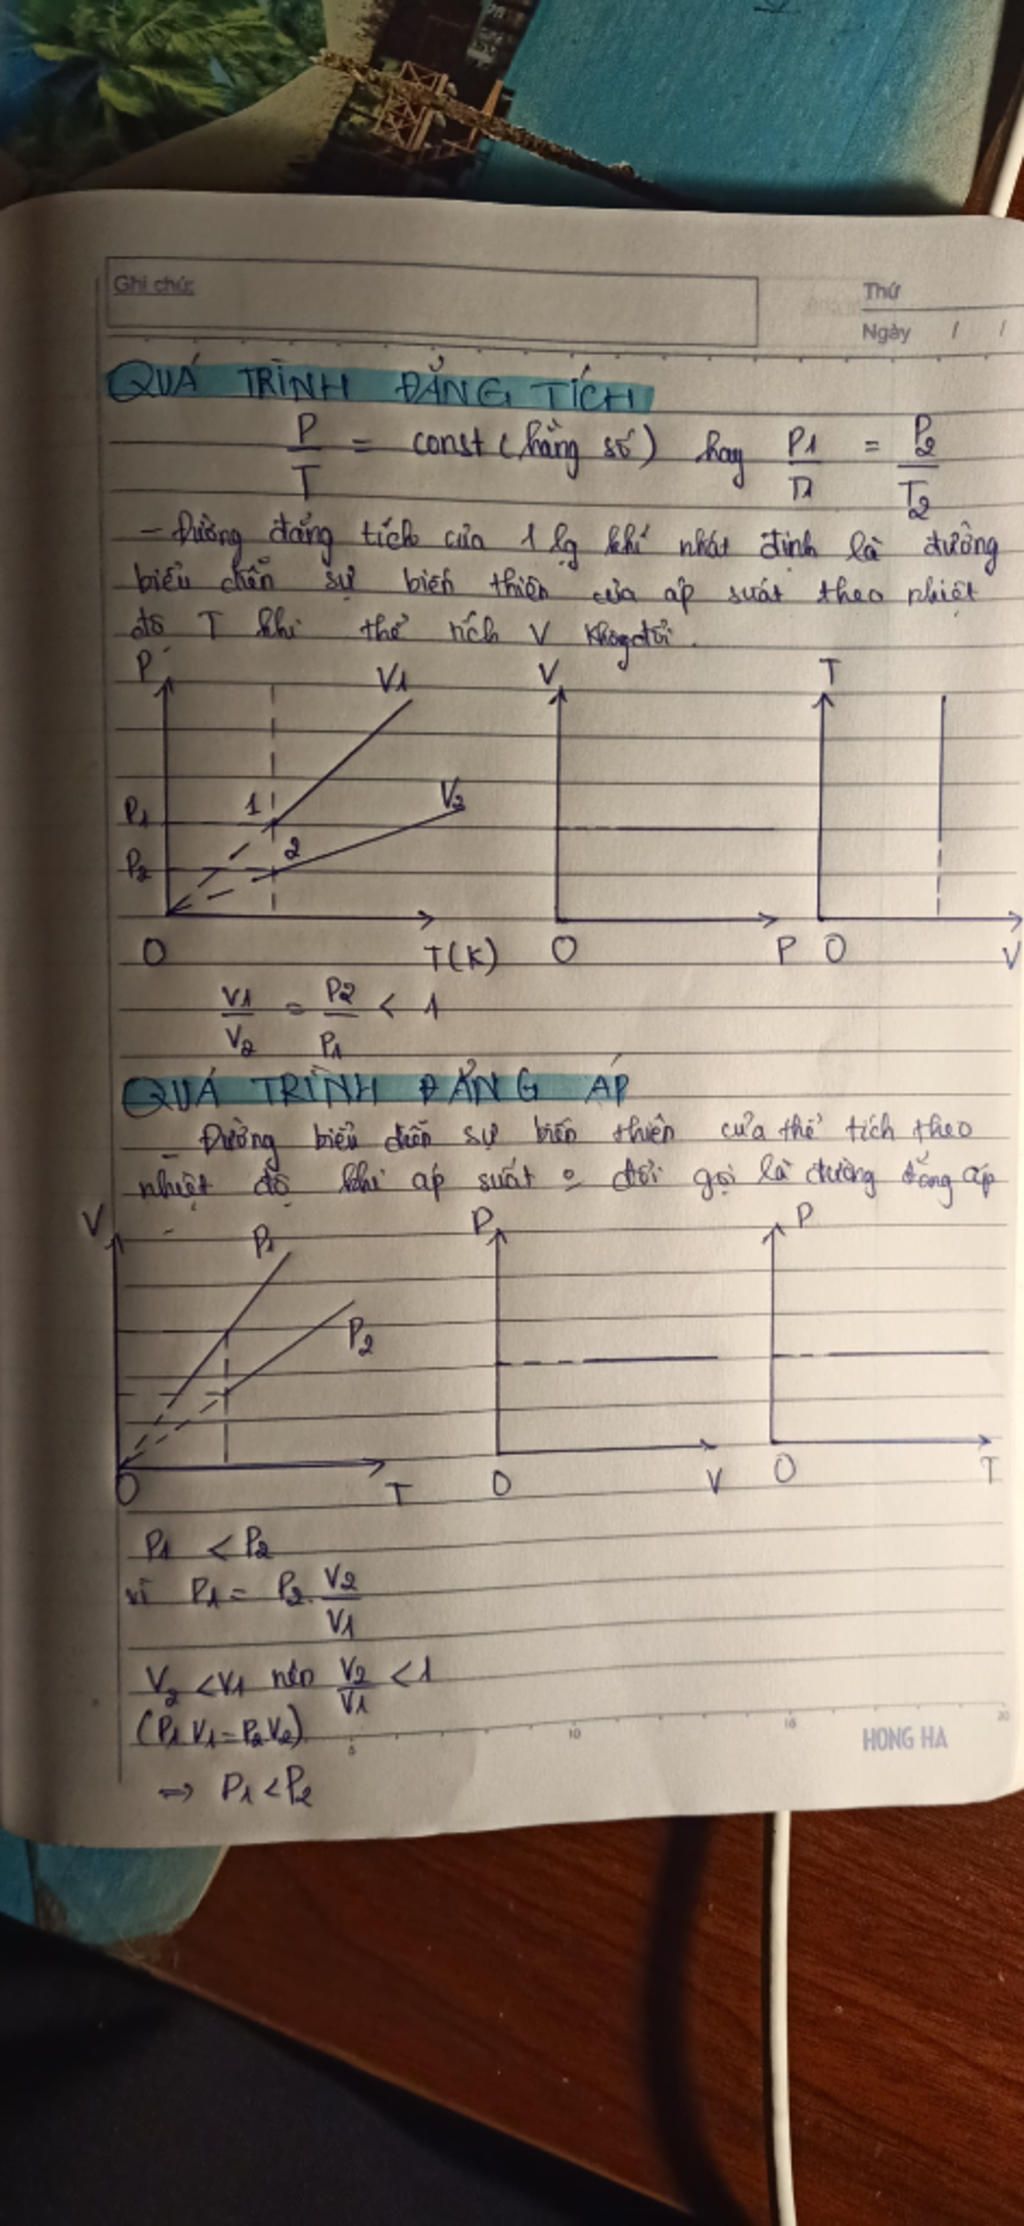 Ghi chú:
Thứ
Ngày / /
QUÁ TRÌNH ĐẲNG TÍCH
P/T = const (hằng số) hay P1/T1 = P2/T2
- Đường đẳng tích của 1 lg khí nhất định là đường
biểu diễn sự biến thiên của áp suất theo nhiệt
độ T khi thể tích V không đổi.
P V1 V T
P1 1 V2
P2 2
O T(K) O P O V
V1/V2 = P2/P1 < 1
QUÁ TRÌNH ĐẲNG ÁP
- Đường biểu diễn sự biến thiên của thể tích theo
nhiệt độ khi áp suất o đổi gọi là đường đẳng áp
V P1 P P
P2
O T O V O T
P1 < P2
vì P1 = P2. V2/V1
V2 < V1 nên V2/V1 < 1
(P1V1 = P2.V2)
5 10 15 20
HONG HA
⇒ P1 < P2